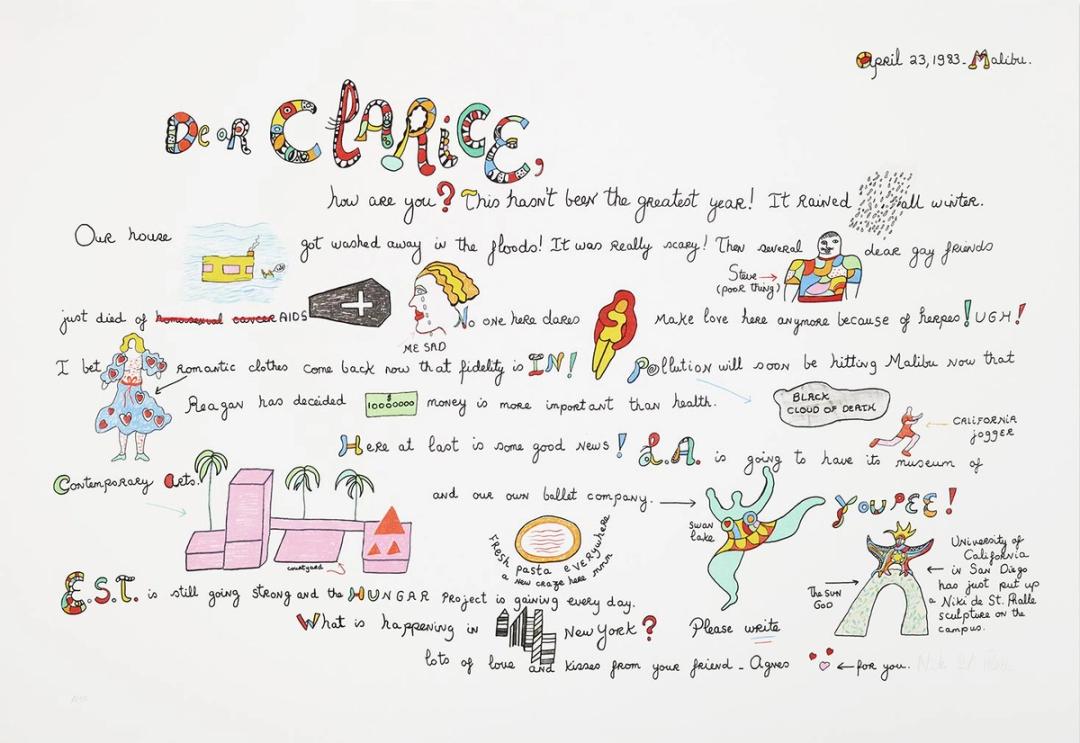 April 23, 1983 - Malibu.
Dear Clarice,
how are you? This hasn't been the greatest year! It rained all winter.
Our house got washed away in the floods! It was really scary! Then several dear gay friends
Steve
(poor thing)
just died of homosexual cancer AIDS
No one here dares make love here anymore because of herpes! UGH!
ME SAD
I bet romantic clothes come back now that fidelity is IN! Pollution will soon be hitting Malibu now that
Reagan has decided $ 10000000 money is more important than health.
BLACK
CLOUD OF DEATH
CALIFORNIA
jogger
Here at last is some good news! L.A. is going to have its museum of
Contemporary Arts.
and our own ballet company.
YOUPEE!
swan
lake
courtyard
FRESH pasta EVERYWHERE
a new craze here mmm
University of
California
in San Diego
has just put up
a Niki de St. Phalle
sculpture on the
campus.
The SUN
GOD
E.S.T. is still going strong and the HUNGAR Project is gaining every day.
What is happening in New York? Please write
lots of love and kisses from your friend - Agnes
←for you.